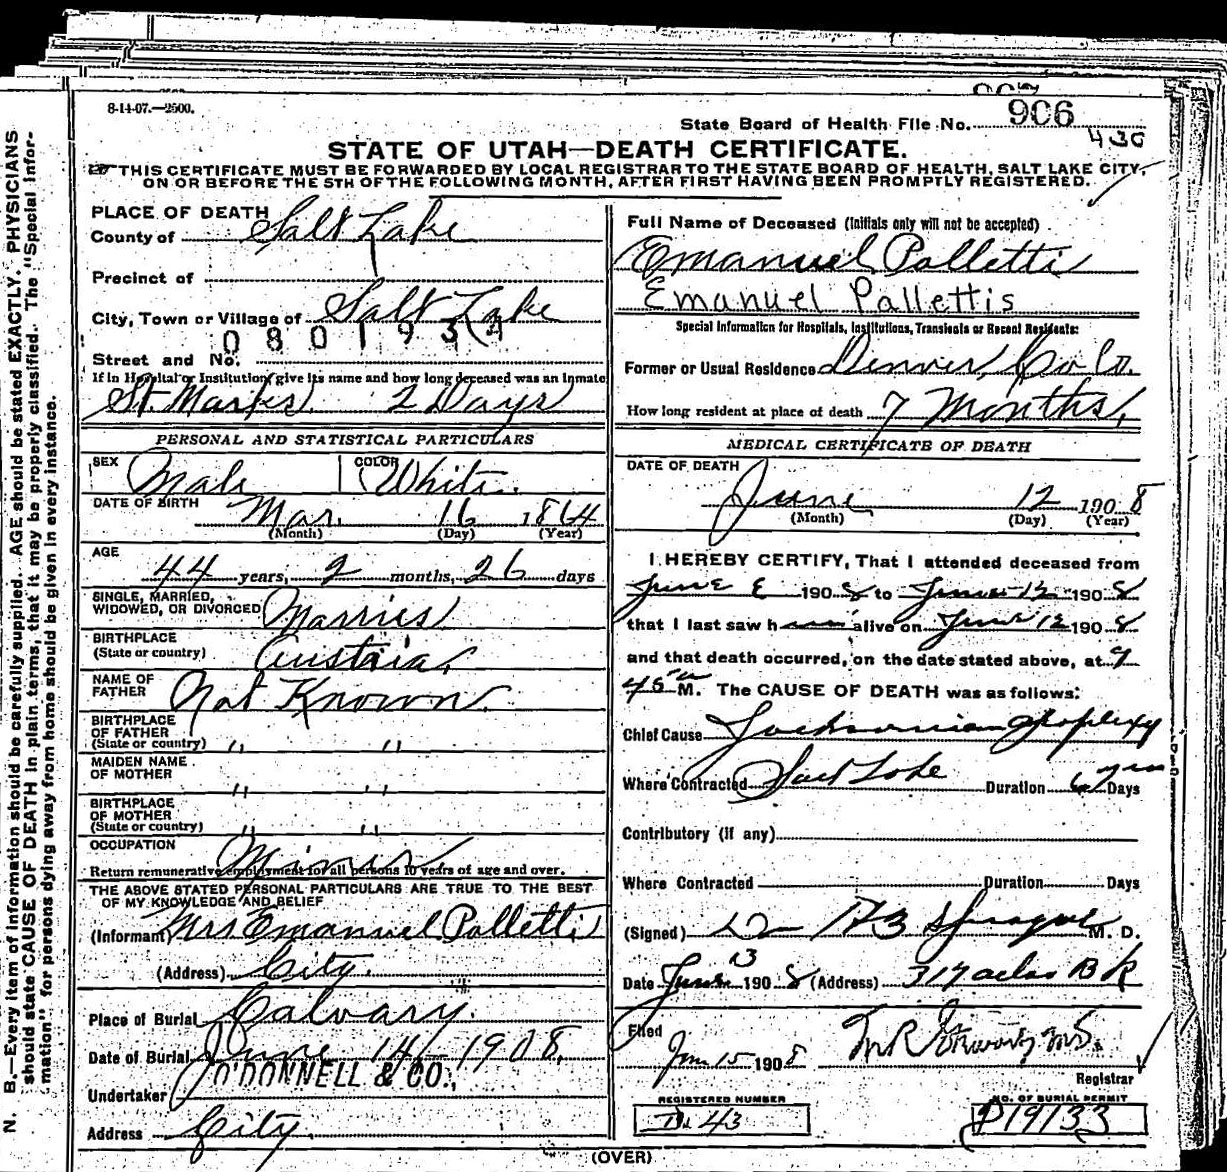 8-14-07.—2500.
State Board of Health File No. 906
430
STATE OF UTAH—DEATH CERTIFICATE.
THIS CERTIFICATE MUST BE FORWARDED BY LOCAL REGISTRAR TO THE STATE BOARD OF HEALTH, SALT LAKE CITY,
ON OR BEFORE THE 5TH OF THE FOLLOWING MONTH, AFTER FIRST HAVING BEEN PROMPTLY REGISTERED.
N. B.—Every item of information should be carefully supplied. AGE should be stated EXACTLY. PHYSICIANS
should state CAUSE OF DEATH in plain terms, that it may be properly classified. The "Special Infor-
mation" for persons dying away from home should be given in every instance.
PLACE OF DEATH
County of Salt Lake
Precinct of
City, Town or Village of Salt Lake
0801934
Street and No.
If in Hospital or Institution, give its name and how long deceased was an inmate
St. Marks 2 Days
PERSONAL AND STATISTICAL PARTICULARS
SEX Male COLOR White.
DATE OF BIRTH Mar. 16 1864
(Month) (Day) (Year)
AGE
44 years, 2 months, 26 days
SINGLE, MARRIED,
WIDOWED, OR DIVORCED Married
BIRTHPLACE
(State or country) Austria.
NAME OF
FATHER Not Known.
BIRTHPLACE
OF FATHER
(State or country) " "
MAIDEN NAME
OF MOTHER " "
BIRTHPLACE
OF MOTHER
(State or country) " "
OCCUPATION Miner
Return remunerative employment for all persons 10 years of age and over.
THE ABOVE STATED PERSONAL PARTICULARS ARE TRUE TO THE BEST
OF MY KNOWLEDGE AND BELIEF
(Informant Mrs Emanuel Palletti
(Address) City.
Place of Burial Calvary.
Date of Burial June 14 1908.
Undertaker O'DONNELL & CO.,
Address City.
Full Name of Deceased (Initials only will not be accepted)
Emanuel Palletti
Emanuel Pallettis
Special Information for Hospitals, Institutions, Transients or Recent Residents:
Former or Usual Residence Denver, Colo.
How long resident at place of death 7 Months,
MEDICAL CERTIFICATE OF DEATH
DATE OF DEATH
June 12 1908
(Month) (Day) (Year)
I HEREBY CERTIFY, That I attended deceased from
June 1908 to June 12 1908
that I last saw h alive on June 12 1908
and that death occurred, on the date stated above, at 9
45 M. The CAUSE OF DEATH was as follows:
Chief Cause Jacksonian Apoplexy
Where Contracted Salt Lake Duration Days
Contributory (if any)
Where Contracted Duration Days
(Signed) Sprague M. D.
Date June 13 1908 (Address) 317 Atlas Bk
Filed
Jun 15 1908
Registrar
REGISTERED NUMBER
D. 43
NO. OF BURIAL PERMIT
D19133
(OVER)